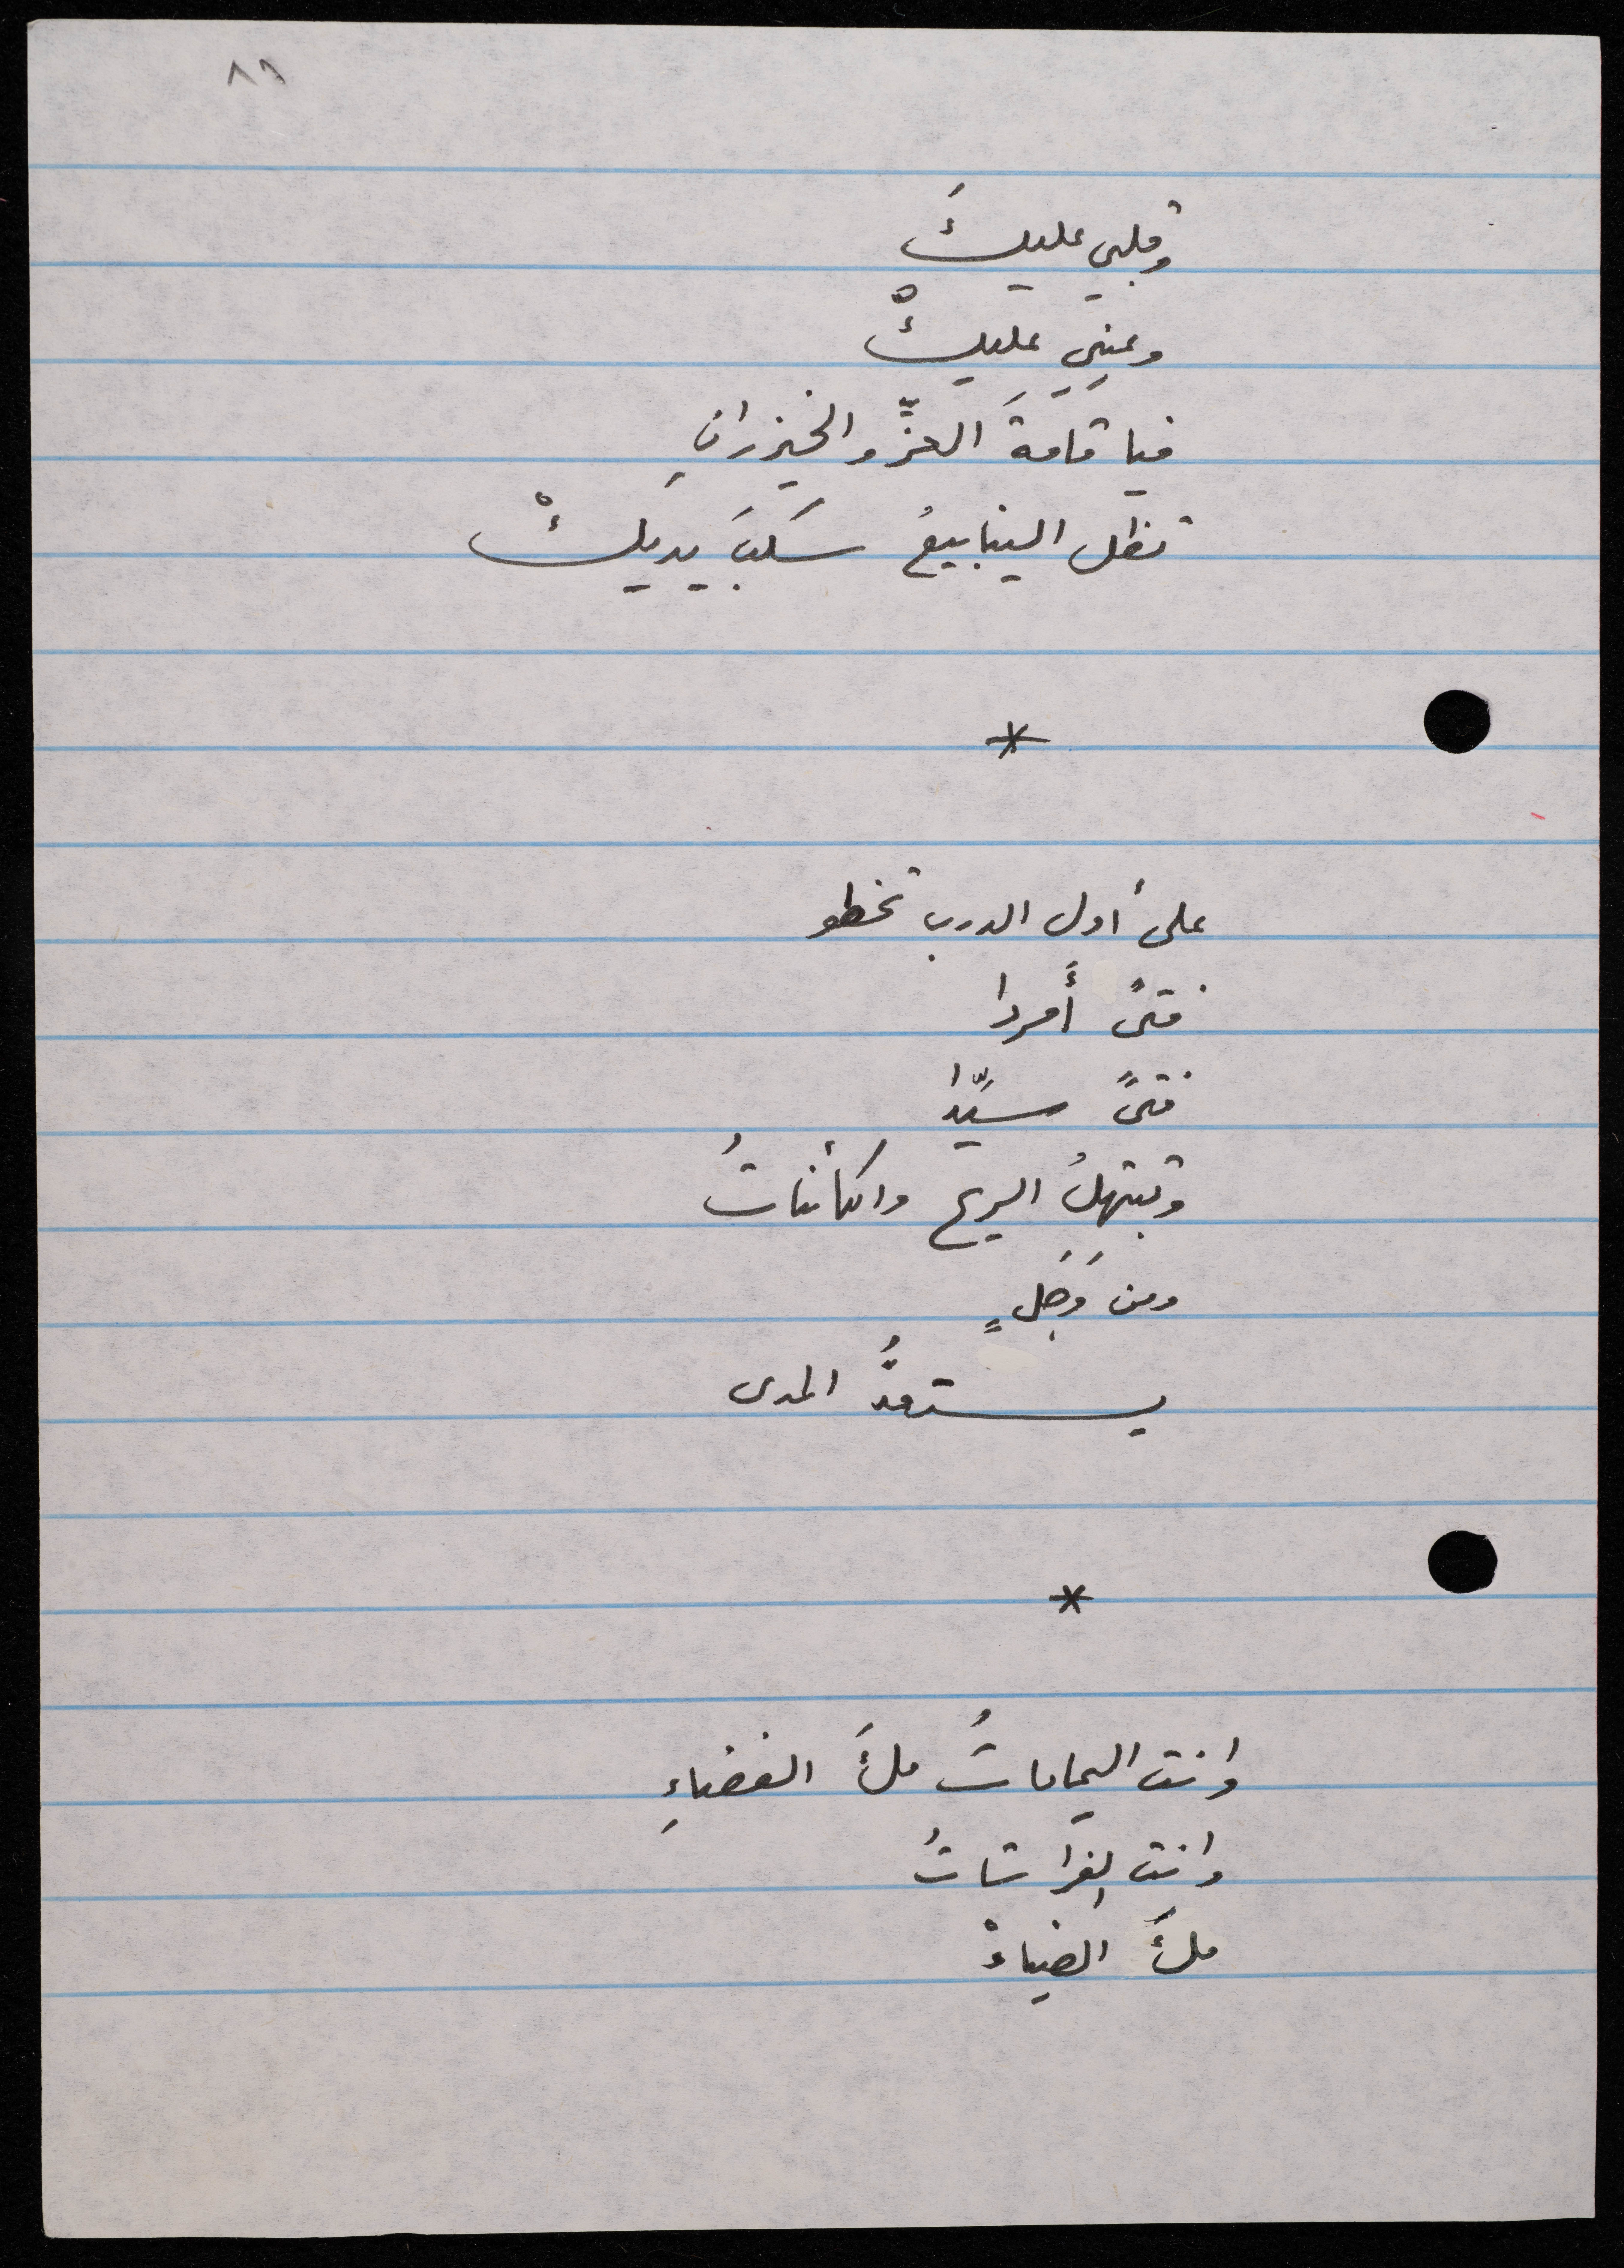 ٨٦
وقلبي عليكَ
وعيني عليكْ
فيا قامةَ العزِّ والخيزرانِ
تظل الينابيعُ سَكبَ يديكْ
*
على أول الدرب تخطو
فتىً أَمردا
فتىً سيّدا
وتبتهلُ الريح والكائناتُ
ومن وَجَلٍ
يستعدُّ المدى
*
وانت اليماماتُ ملءَ الفضاءِ
وانت الفراشاتُ
ملءَ الضياءْ